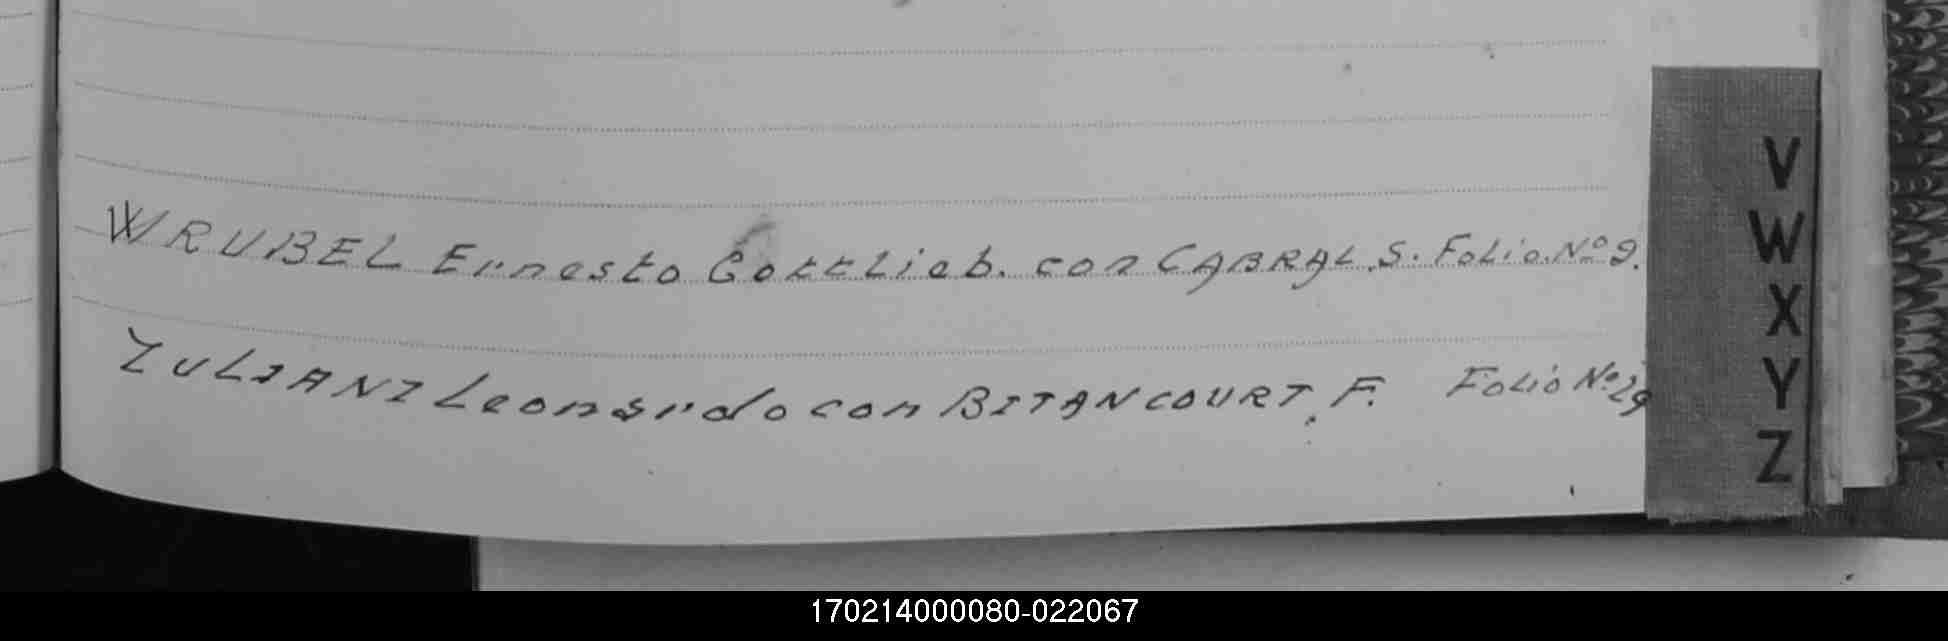 WRUBEL Ernesto Gottlieb. con CABRAL S. Folio Nº 9.
ZULIANI Leonardo con BITANCOURT, F. Folio Nº 29
V
W
X
Y
Z
170214000080-022067